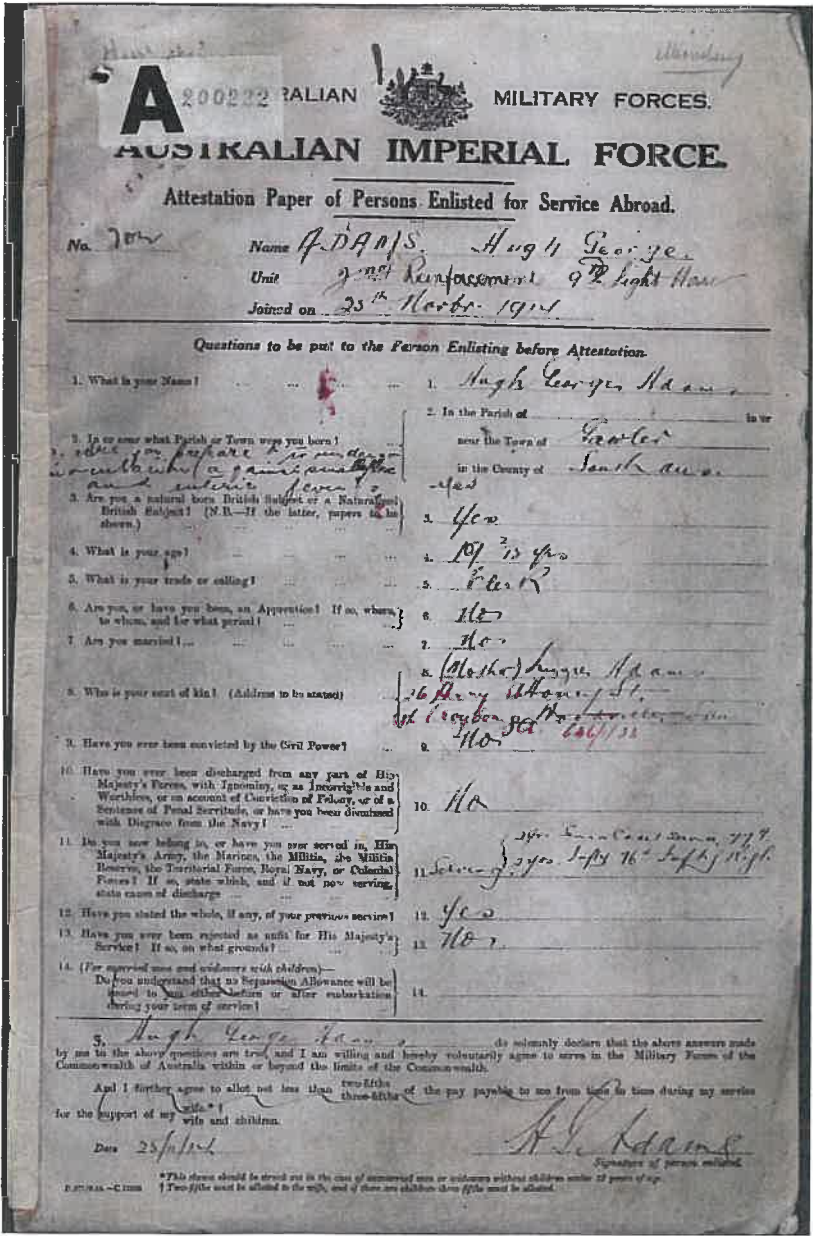 A 200222 RALIAN MILITARY FORCES.
AUSTRALIAN IMPERIAL FORCE.
Attestation Paper of Persons Enlisted for Service Abroad.
No. Name ADAMS. Hugh George.
Unit 2nd Reinforcement 9th Light Horse
Joined on 25th Novbr. 1914
Questions to be put to the Person Enlisting before Attestation.
1. What is your Name? ... ... ... 1. Hugh George Adams
2. In or near what Parish or Town were you born? 2. In the Parish of in or
near the Town of Gawler
in the County of South
you prepare to undergo
inoculation against small pox
and enteric fever yes
3. Are you a natural born British Subject or a Naturalized
British Subject? (N.B.—If the latter, papers to be
shown.) 3. Yes
4. What is your age? ... ... ... 4. 19 yrs
5. What is your trade or calling? ... ... 5. Clerk
6. Are you, or have you been, an Apprentice? If so, where,
to whom, and for what period? 6. No
7. Are you married?... ... ... 7. No
8. Who is your next of kin? (Address to be stated) 8. (Mother) Adams
Croydon SA
9. Have you ever been convicted by the Civil Power? ... 9. No
10. Have you ever been discharged from any part of His
Majesty's Forces, with Ignominy, or as Incorrigible and
Worthless, or on account of Conviction of Felony, or of a
Sentence of Penal Servitude, or have you been dismissed
with Disgrace from the Navy? ... 10. No
11. Do you now belong to, or have you ever served in, His
Majesty's Army, the Marines, the Militia, the Militia
Reserve, the Territorial Force, Royal Navy, or Colonial
Forces? If so, state which, and if not now serving,
state cause of discharge ... 11. Serving 2 yrs. Infty 76th Infty Regt.
12. Have you stated the whole, if any, of your previous service? 12. Yes
13. Have you ever been rejected as unfit for His Majesty's
Service? If so, on what grounds? 13. No
14. (For married men and widowers with children)—
Do you understand that no Separation Allowance will be
issued to you either before or after embarkation
during your term of service? 14.
I, Hugh George Adams do solemnly declare that the above answers made
by me to the above questions are true, and I am willing and hereby voluntarily agree to serve in the Military Forces of the
Commonwealth of Australia within or beyond the limits of the Commonwealth.
And I further agree to allot not less than two-fifths three-fifths of the pay payable to me from time to time during my service
for the support of my wife.* † wife and children.
Date 25/11/14 H G Adams
Signature of person enlisted.
*This clause should be struck out in the case of unmarried men or widowers without children under 18 years of age.
† Two-fifths must be allotted to the wife, and if there are children three-fifths must be allotted.